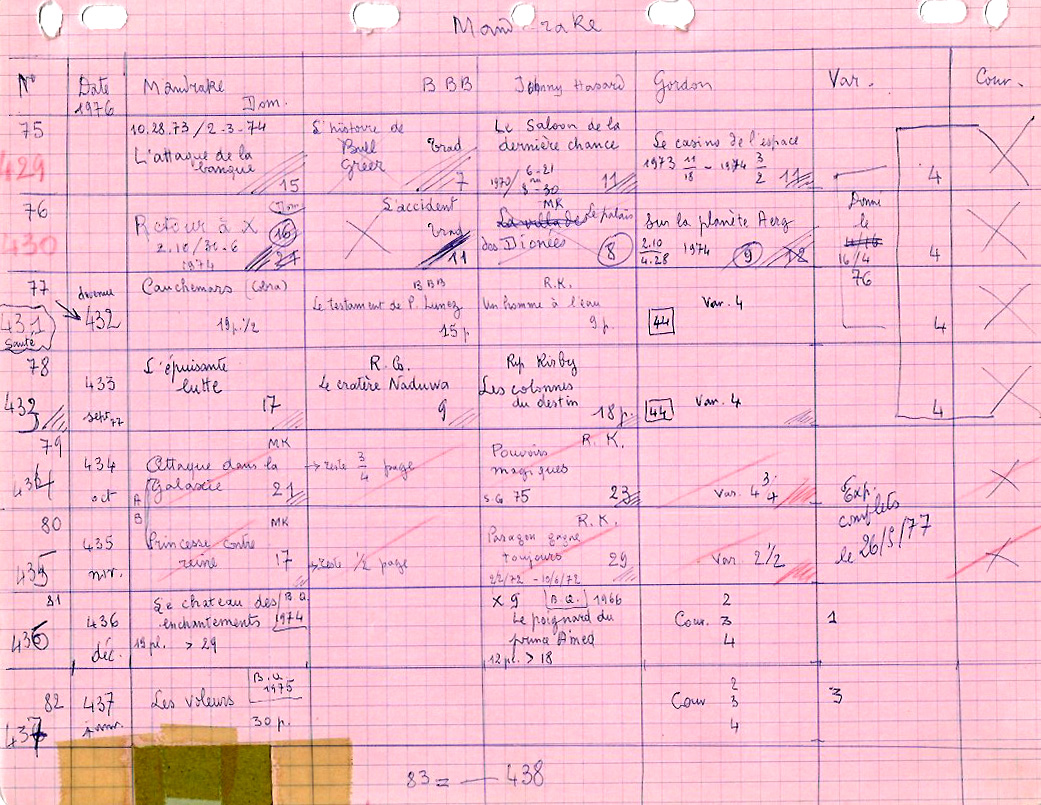 Mandrake
N° Date Mandrake B B B Johnny Hasard Gordon Var. Couv.
1976 Dom.
75
429
10.28.73 / 2-3-74
L'attaque de la
banque
15
L'histoire de
Bull
Greer
Trad
7
Le Saloon de la
dernière chance
11
Le casino de l'espace
1973 11/18 - 1974 3/2
11
4
76
430
Retour à X
Dom
16
2.10/30-6
1974
27
L'accident
Trad
11
MK
La villa des Le palais
des Dionées
8
Sur la planète Aerg
2.10
4.28 1974
9
12
Donné
le
16/4
76
4
77
431
Santé
432
Cauchemars
19 p. 1/2
BBB
Le testament de P. Lunez
15 p
R.K.
Un homme à l'eau
9 p.
44
Var. 4
4
78
432
433
sept 77
L'épuisante
lutte
17
R. Co.
Le cratère Naduwa
9
Rip Kirby
Les colonnes
du destin
18 p.
44
Var. 4
4
79
434
oct
MK
Attaque dans la
Galaxie
21
A
B
→ reste 3/4 page
R. K.
Pouvoirs
magiques
S.G 75
23
Var. 4 3/4
Exp.
complets
le 26/5/77
80
435
435
nov.
MK
Princesse contre
reine
17
→ reste 1/2 page
R. K.
Paragon gagne
toujours
29
22/72 - 10/6/72
Var. 2 1/2
81
436
436
déc.
Le chateau des
enchantements
B.Q.
1974
19 pl. > 29
X 9 B.Q. 1966
Le poignard du
prince Amed
12 pl. > 18
Couv.
2
3
4
1
82
437
437
janv.
Les voleurs
B.Q.
1975
30 p.
Couv
2
3
4
3
83 = — 438